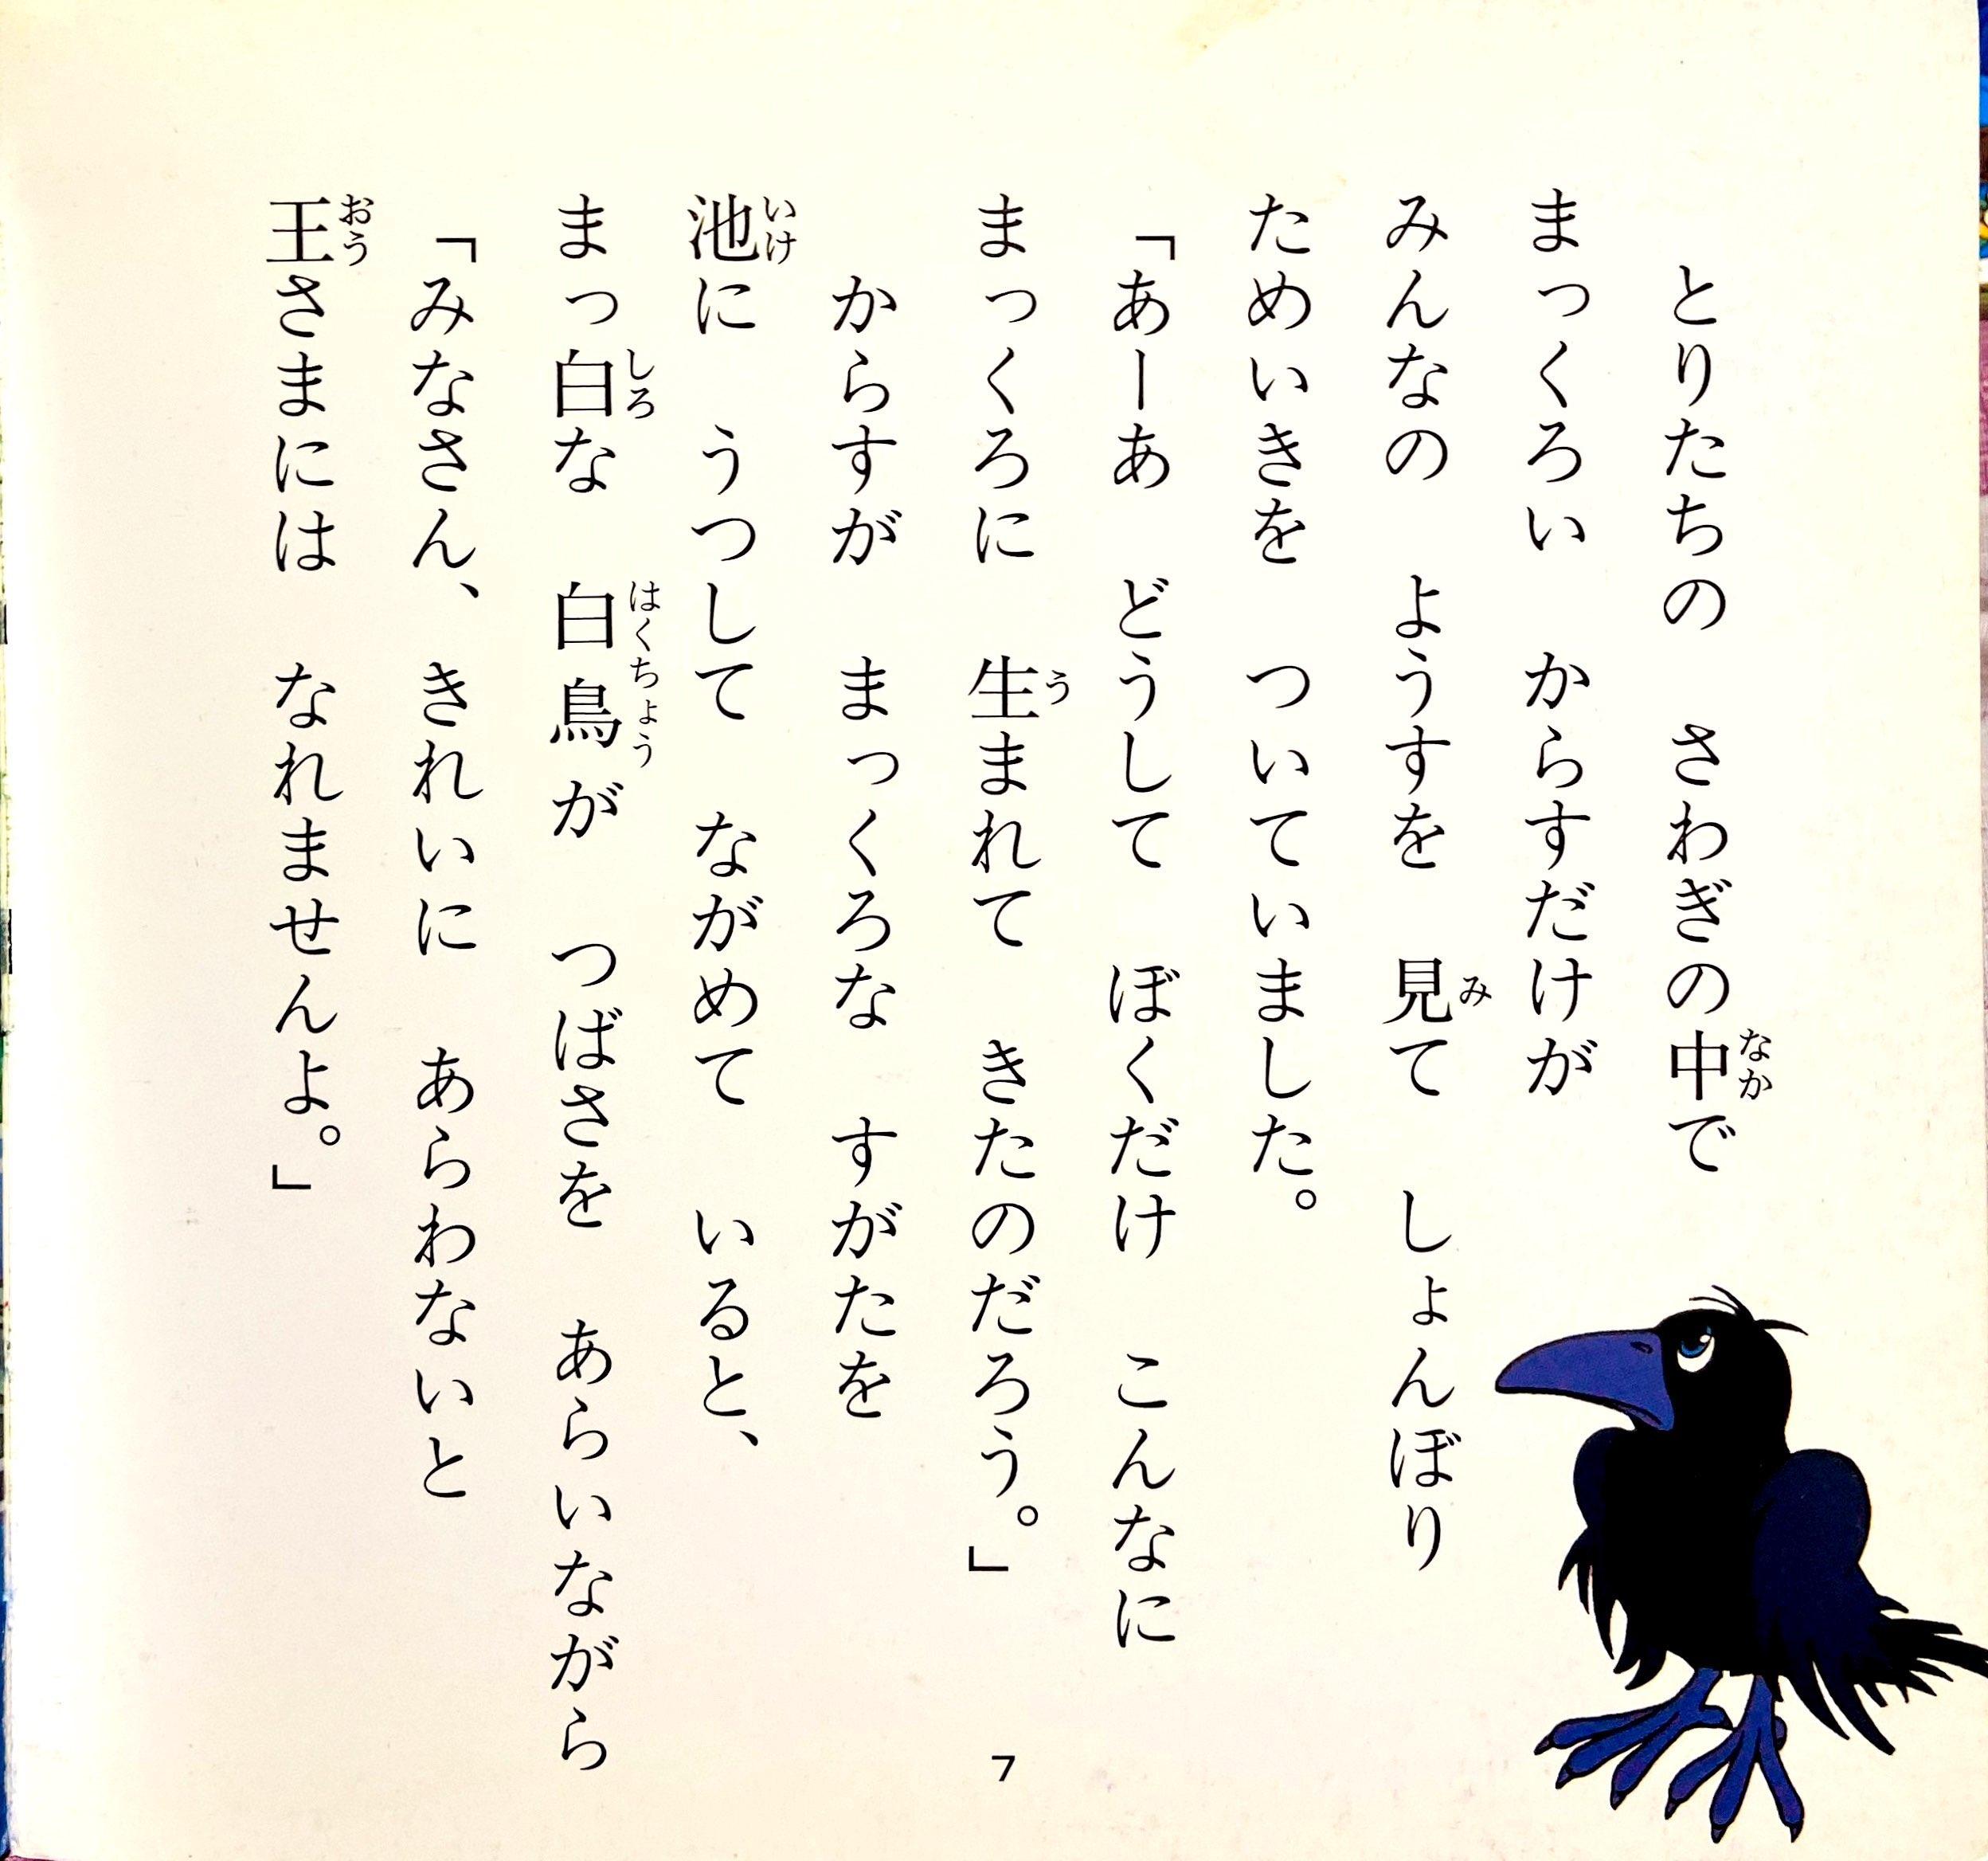 とりたちの　さわぎの中で
まっくろい　からすだけが
みんなの　ようすを　見て　しょんぼり
ためいきを　ついていました。
「あーあ　どうして　ぼくだけ　こんなに
まっくろに　生まれて　きたのだろう。」
からすが　まっくろな　すがたを
池に　うつして　ながめて　いると、
まっ白な　白鳥が　つばさを　あらいながら
「みなさん、きれいに　あらわないと
王さまには　なれませんよ。」
7